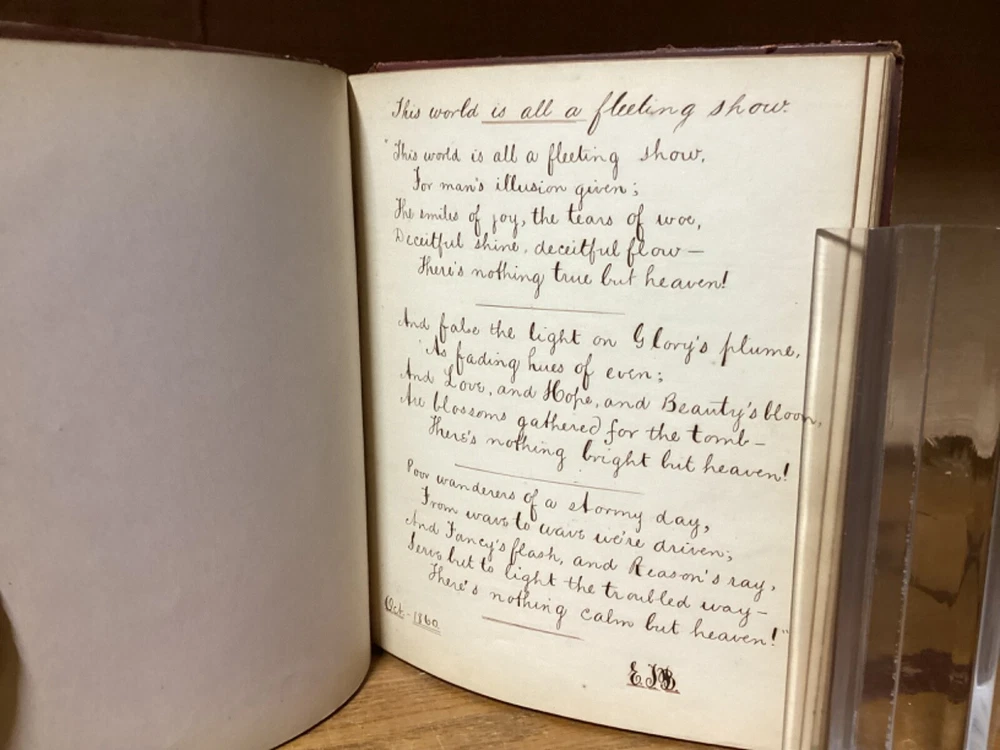 This world is all a fleeting show.
"This world is all a fleeting show,
For man's illusion given;
The smiles of joy, the tears of woe,
Deceitful shine, deceitful flow—
There's nothing true but heaven!
And false the light on Glory's plume,
As fading hues of even;
And Love, and Hope, and Beauty's bloom,
Are blossoms gathered for the tomb—
There's nothing bright but heaven!
Poor wanderers of a stormy day,
From wave to wave we're driven;
And Fancy's flash, and Reason's ray,
Serve but to light the troubled way—
There's nothing calm but heaven!"
Oct - 1860